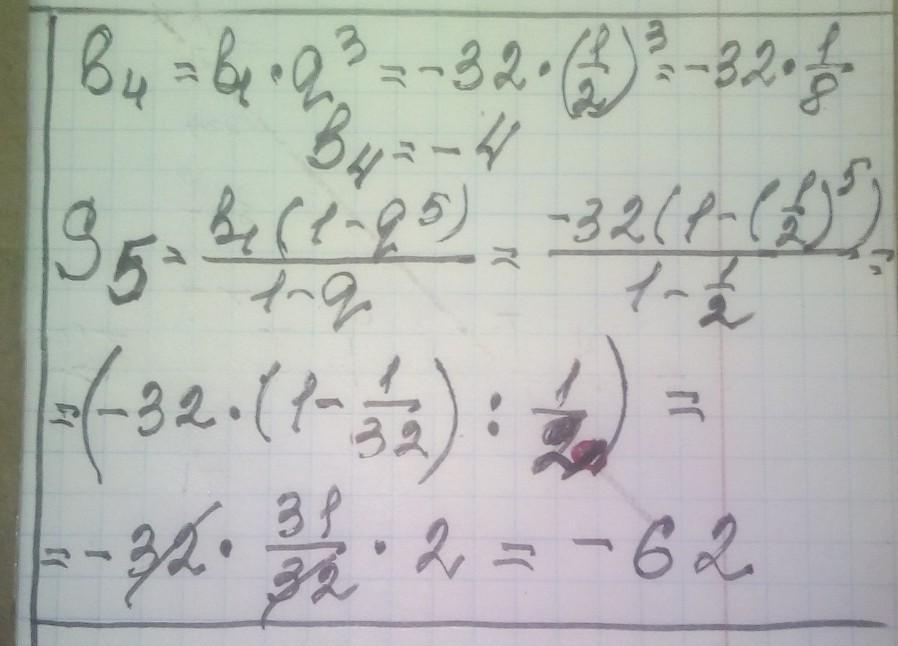 b₄ = b₁ · q³ = -32 · (1/2)³ = -32 · 1/8
b₄ = -4
S₅ = b₁(1-q⁵)/(1-q) = -32(1-(1/2)⁵)/(1-1/2) =
= (-32 · (1 - 1/32) : 1/2) =
= -32 · 31/32 · 2 = -62